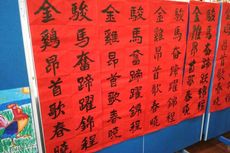 駿馬奮蹄躍錦程
金雞昂首歌春曉
駿馬奮蹄躍錦程
金雞昂首歌春曉
駿馬奮蹄躍錦程
金雞昂首歌春曉
駿馬奮蹄躍錦程
金鷄昂首歌春曉